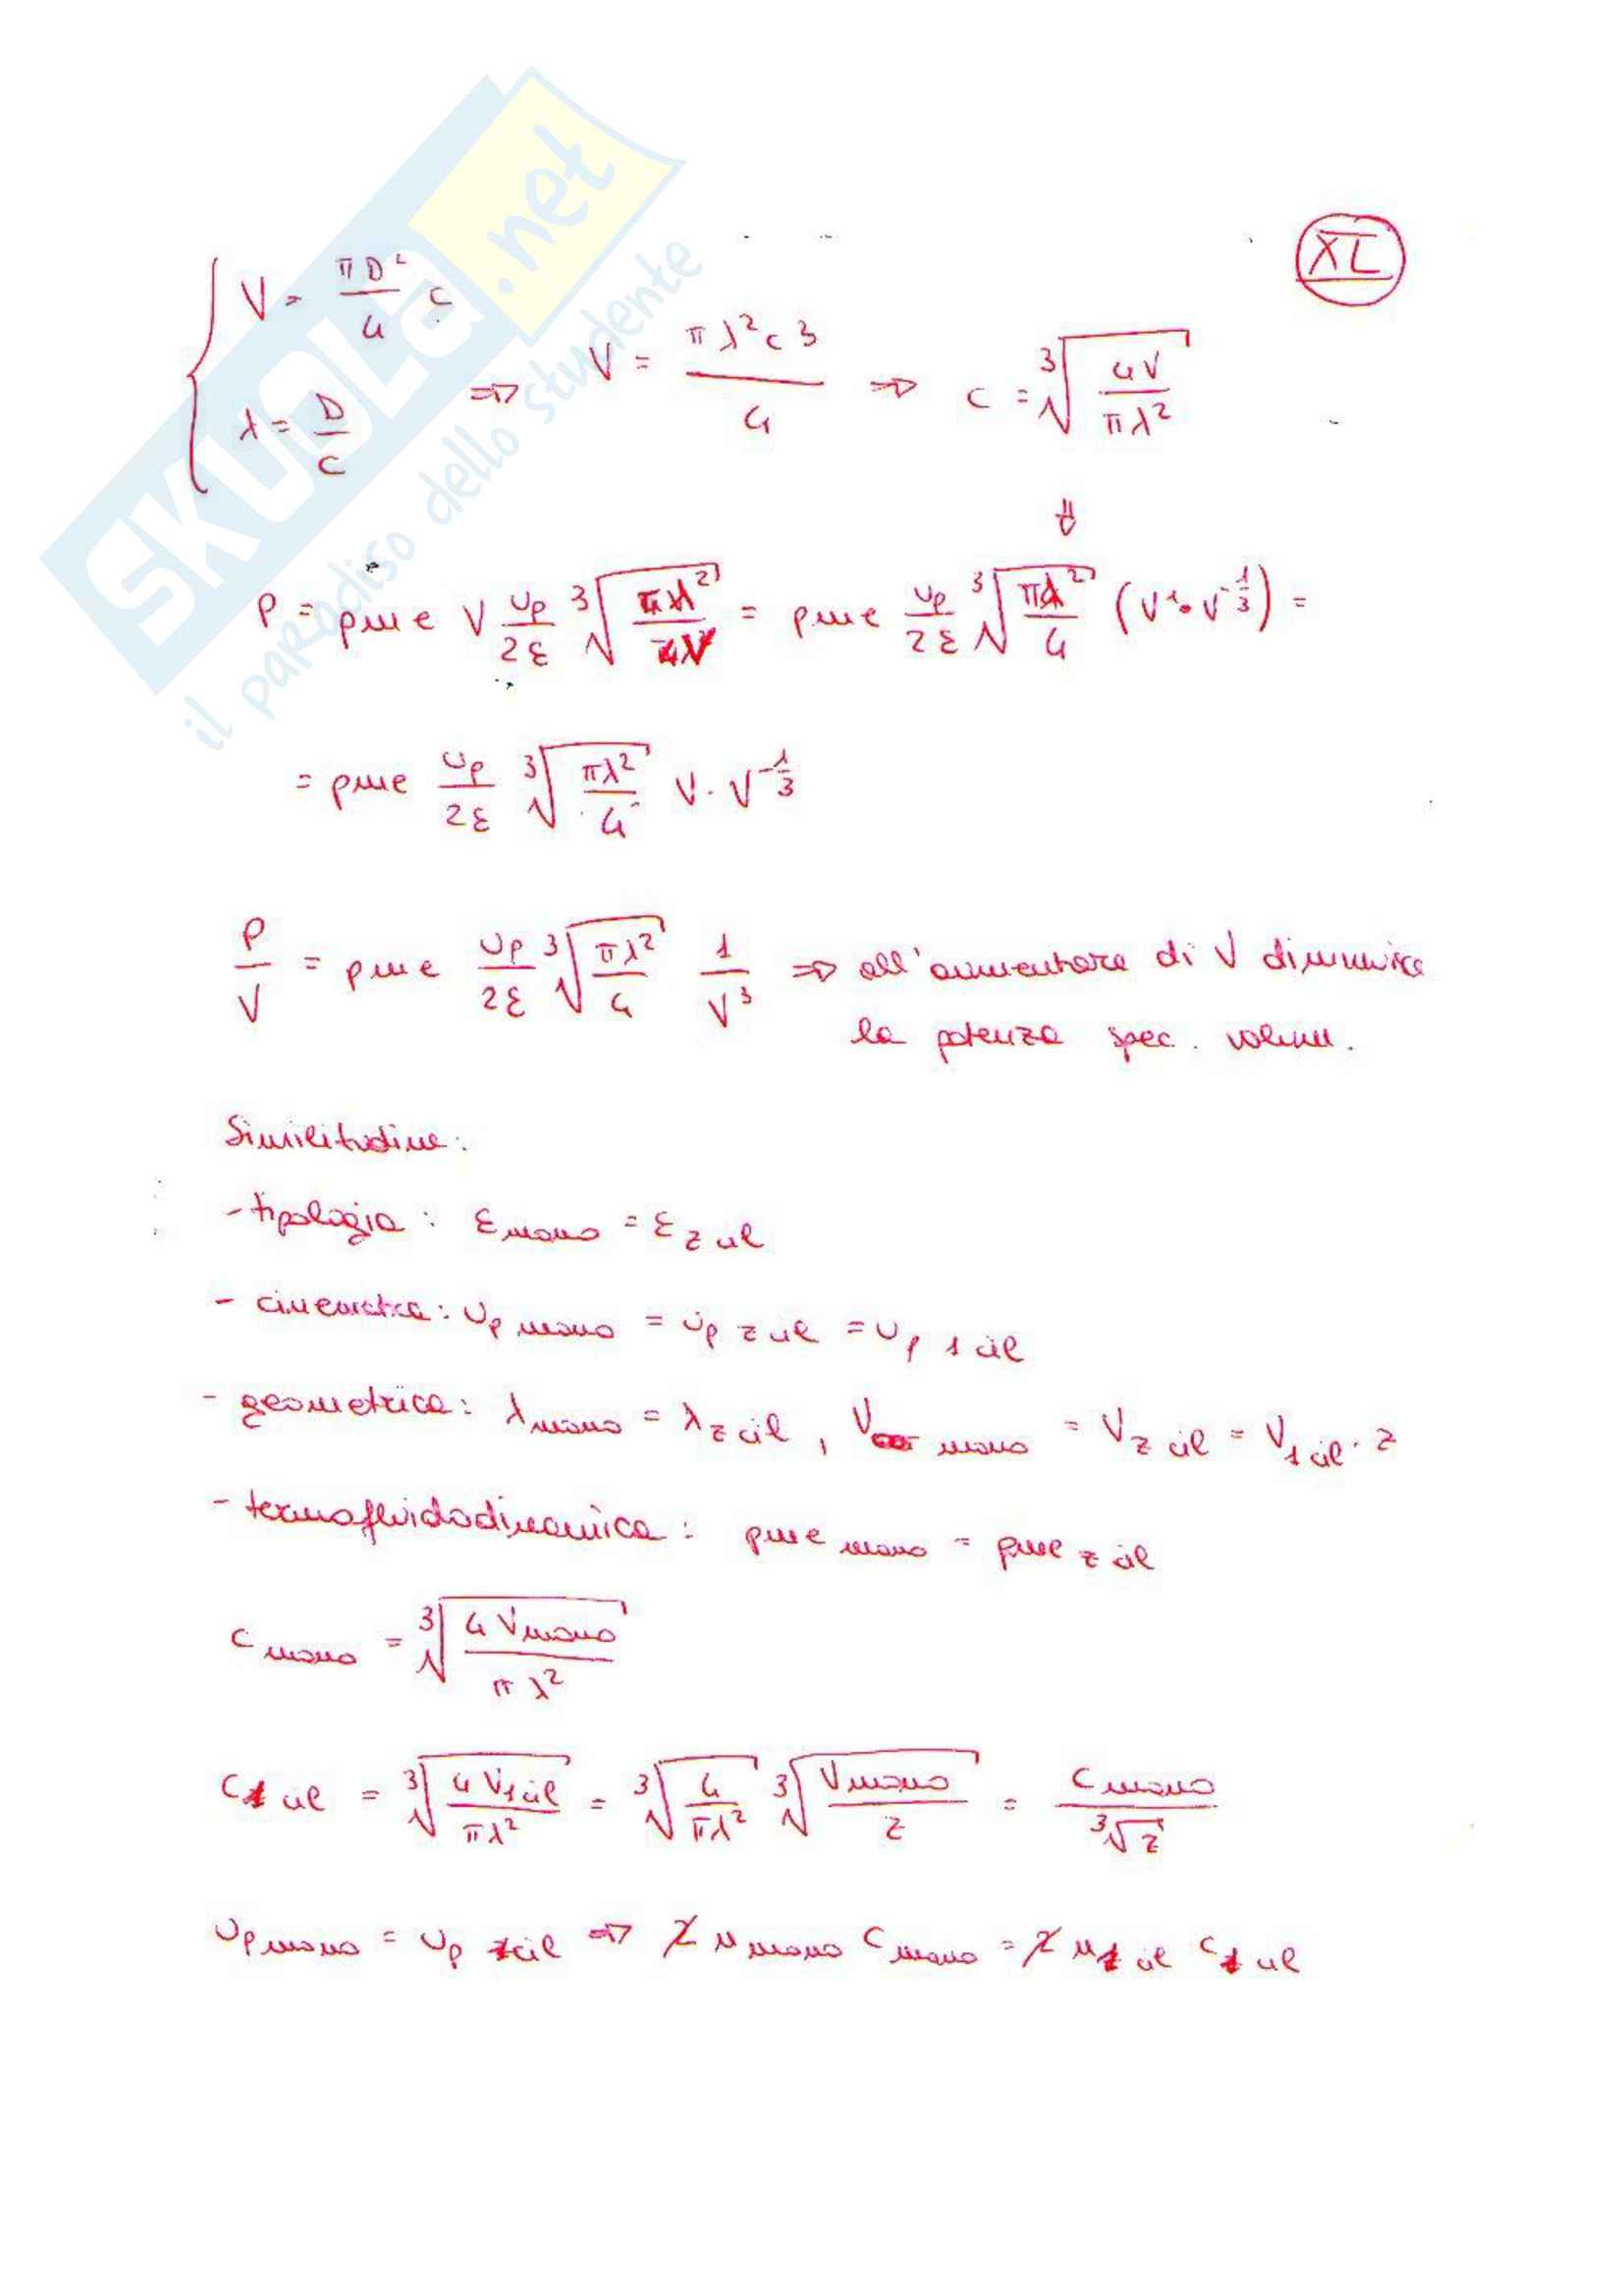 SKUOLa.net
il paradiso dello studente
XL
{ V = πD²/4 c
λ = D/c ⇒ V = πλ²c3/4 ⇒ c = ∛(4V/πλ²)
⇓
P = pme V up/2ε ∛(πλ²/4V) = pme up/2ε ∛(πλ²/4) (V¹·V^-1/3) =
= pme up/2ε ∛(πλ²/4) V·V^-1/3
P/V = pme up/2ε ∛(πλ²/4) 1/V³ ⇒ all'aumentare di V diminuisce
la potenza spec. volum.
Similitudine:
- tipologia: ε mono = ε z cil
- cinematica: up mono = up z cil = up 1 cil
- geometrica: λ mono = λ z cil, V mono = V z cil = V 1 cil · z
- termofluidodinamica: pme mono = pme z cil
c mono = ∛(4 V mono/πλ²)
c 1 cil = ∛(4 V 1 cil/πλ²) = ∛(4/πλ²) ∛(V mono/z) = c mono/∛z
up mono = up 1 cil ⇒ 2 n mono c mono = 2 n 1 cil c 1 cil